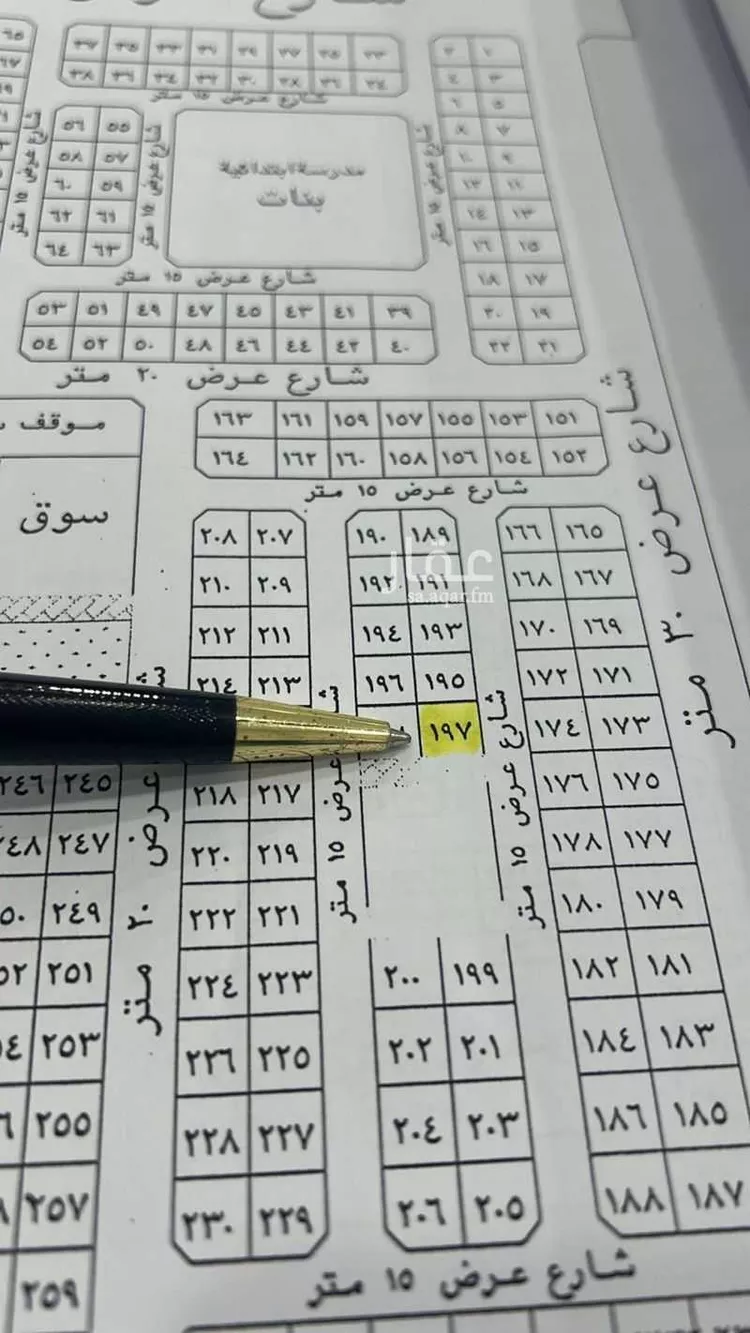 ٣٧ ٣٥ ٣٣ ٣١ ٢٩ ٢٧ ٢٥ ٢٣
٣٨ ٣٦ ٣٤ ٣٢ ٣٠ ٢٨ ٢٦ ٢٤
شارع عرض ١٥ متر
٢ ١
٤ ٣
٦ ٥
٨ ٧
١٠ ٩
١٢ ١١
١٤ ١٣
١٦ ١٥
١٨ ١٧
٢٠ ١٩
٢٢ ٢١
شارع عرض ١٥ متر
مدرسة ابتدائية
بنات
شارع عرض ١٥ متر
٥٦ ٥٥
٥٨ ٥٧
٦٠ ٥٩
٦٢ ٦١
٦٤ ٦٣
شارع عرض ١٥ متر
شارع عرض ١٥ متر
٥٣ ٥١ ٤٩ ٤٧ ٤٥ ٤٣ ٤١ ٣٩
٥٤ ٥٢ ٥٠ ٤٨ ٤٦ ٤٤ ٤٢ ٤٠
شارع عرض ٢٠ متر
شارع عرض ٣٠ متر
موقف
سوق
١٦٣ ١٦١ ١٥٩ ١٥٧ ١٥٥ ١٥٣ ١٥١
١٦٤ ١٦٢ ١٦٠ ١٥٨ ١٥٦ ١٥٤ ١٥٢
شارع عرض ١٥ متر
١٦٦ ١٦٥
١٦٨ ١٦٧
١٧٠ ١٦٩
١٧٢ ١٧١
١٧٤ ١٧٣
١٧٦ ١٧٥
١٧٨ ١٧٧
١٨٠ ١٧٩
١٨٢ ١٨١
١٨٤ ١٨٣
١٨٦ ١٨٥
١٨٨ ١٨٧
شارع عرض ١٥ متر
١٩٠ ١٨٩
١٩٢ ١٩١
١٩٤ ١٩٣
١٩٦ ١٩٥
١٩٧
٢٠٠ ١٩٩
٢٠٢ ٢٠١
٢٠٤ ٢٠٣
٢٠٦ ٢٠٥
عقار
sa.aqar.fm
عرض ١٥ متر
٢٠٨ ٢٠٧
٢١٠ ٢٠٩
٢١٢ ٢١١
٢١٤ ٢١٣
٢١٨ ٢١٧
٢٢٠ ٢١٩
٢٢٢ ٢٢١
٢٢٤ ٢٢٣
٢٢٦ ٢٢٥
٢٢٨ ٢٢٧
٢٣٠ ٢٢٩
عرض ٢٠ متر
٢٤٦ ٢٤٥
٢٤٨ ٢٤٧
٢٤٩
٢٥١
٢٥٣
٢٥٥
٢٥٧
٢٥٩
شارع عرض ١٥ متر